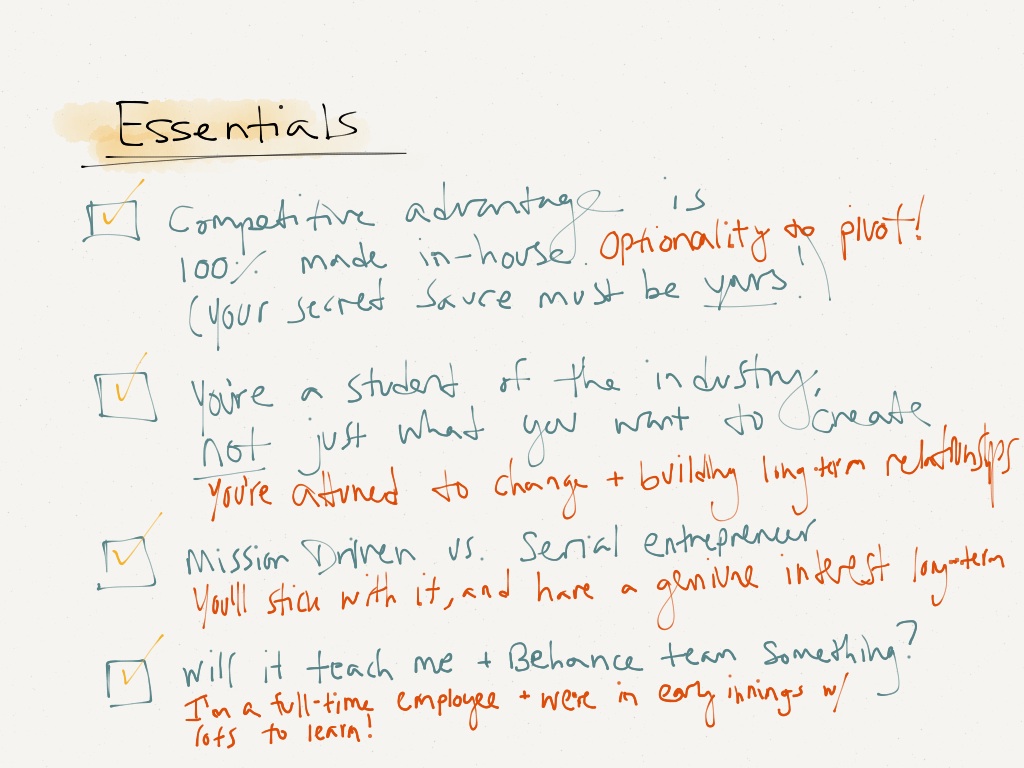 Essentials
Competitive advantage is
100% made in-house. Optionality to pivot!
(your secret sauce must be yours!)
You're a student of the industry,
not just what you want to create
You're attuned to change + building long-term relationships
Mission Driven vs. Serial entrepreneur
You'll stick with it, and have a geniune interest long-term
Will it teach me + Behance team something?
I'm a full-time employee + we're in early innings w/
lots to learn!